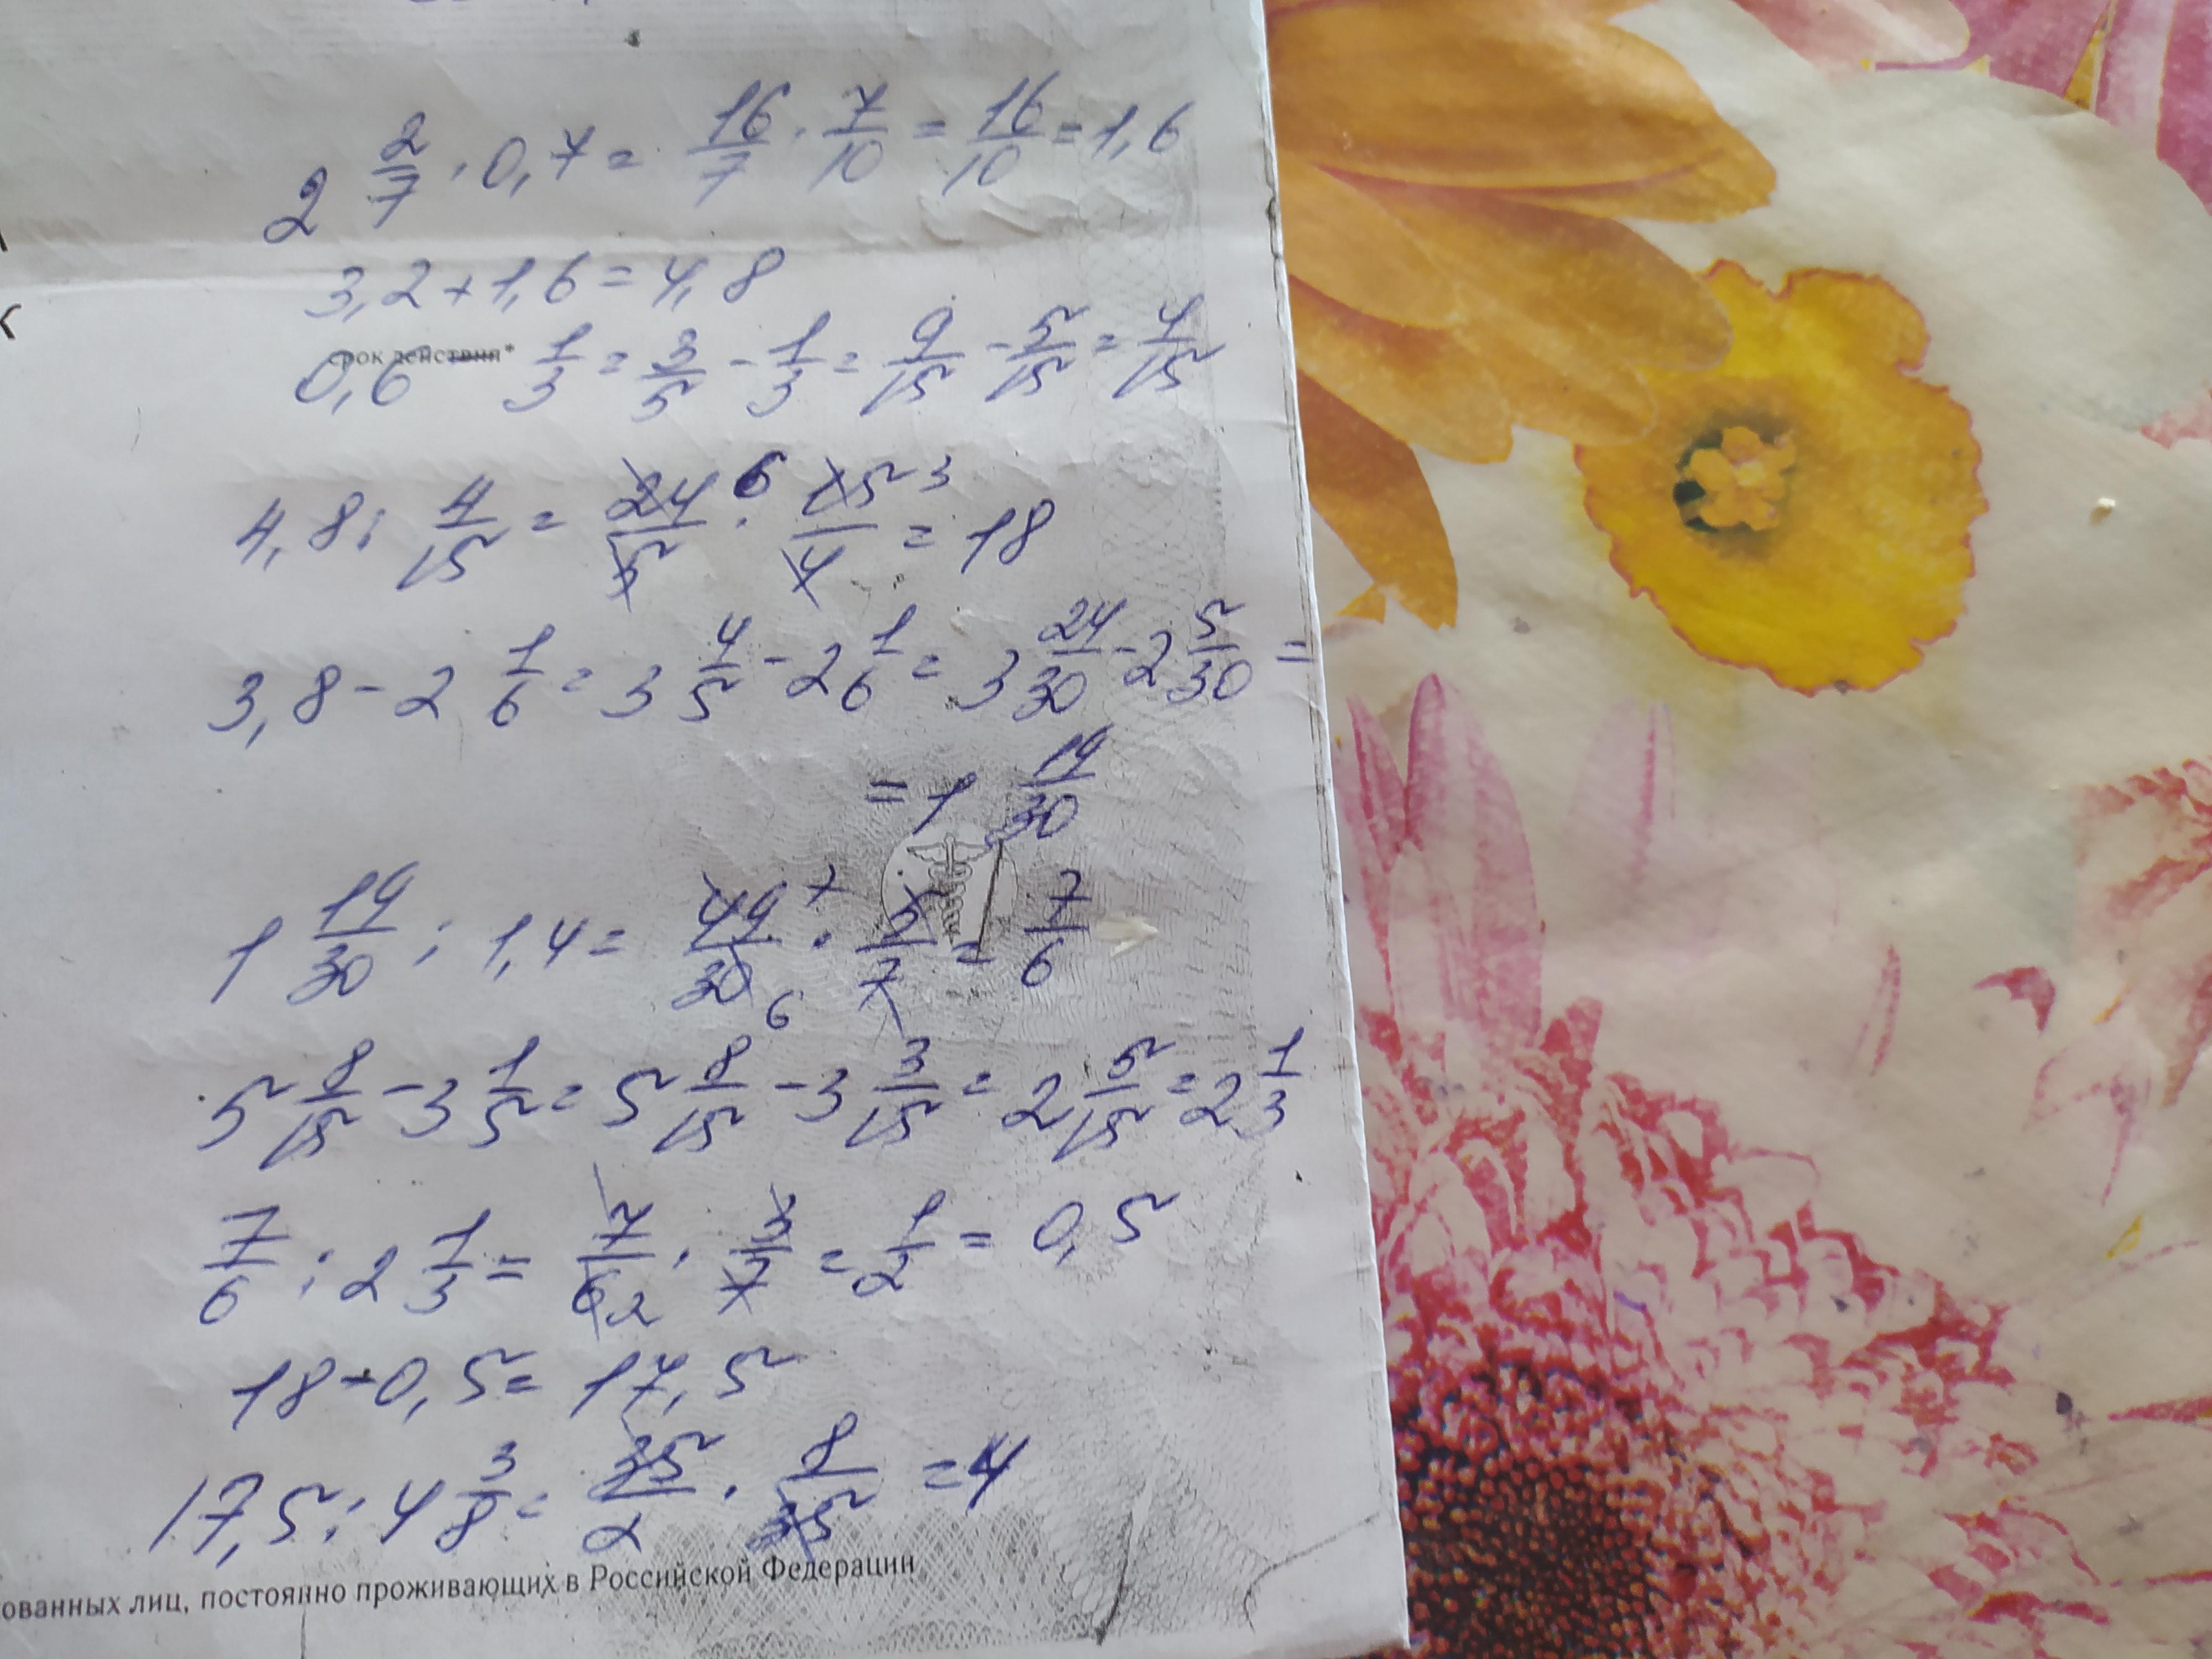 2 2/7 · 0,7 = 16/7 · 7/10 = 16/10 = 1,6
3,2 + 1,6 = 4,8
срок действия*
0,6 - 1/3 = 3/5 - 1/3 = 9/15 - 5/15 = 4/15
4,8 : 4/15 = 24/5 6 · 15/4 3 = 18
3,8 - 2 1/6 = 3 4/5 - 2 1/6 = 3 24/30 - 2 5/30 =
= 1 19/30
1 19/30 : 1,4 = 49/30 7 6 · 5/7 = 7/6
5 8/15 - 3 1/5 = 5 8/15 - 3 3/15 = 2 5/15 = 2 1/3
7/6 : 2 1/3 = 7/6 2 · 3/7 = 1/2 = 0,5
18 - 0,5 = 17,5
17,5 : 4 3/8 = 35/2 · 8/35 = 4
ованных лиц, постоянно проживающих в Российской Федерации